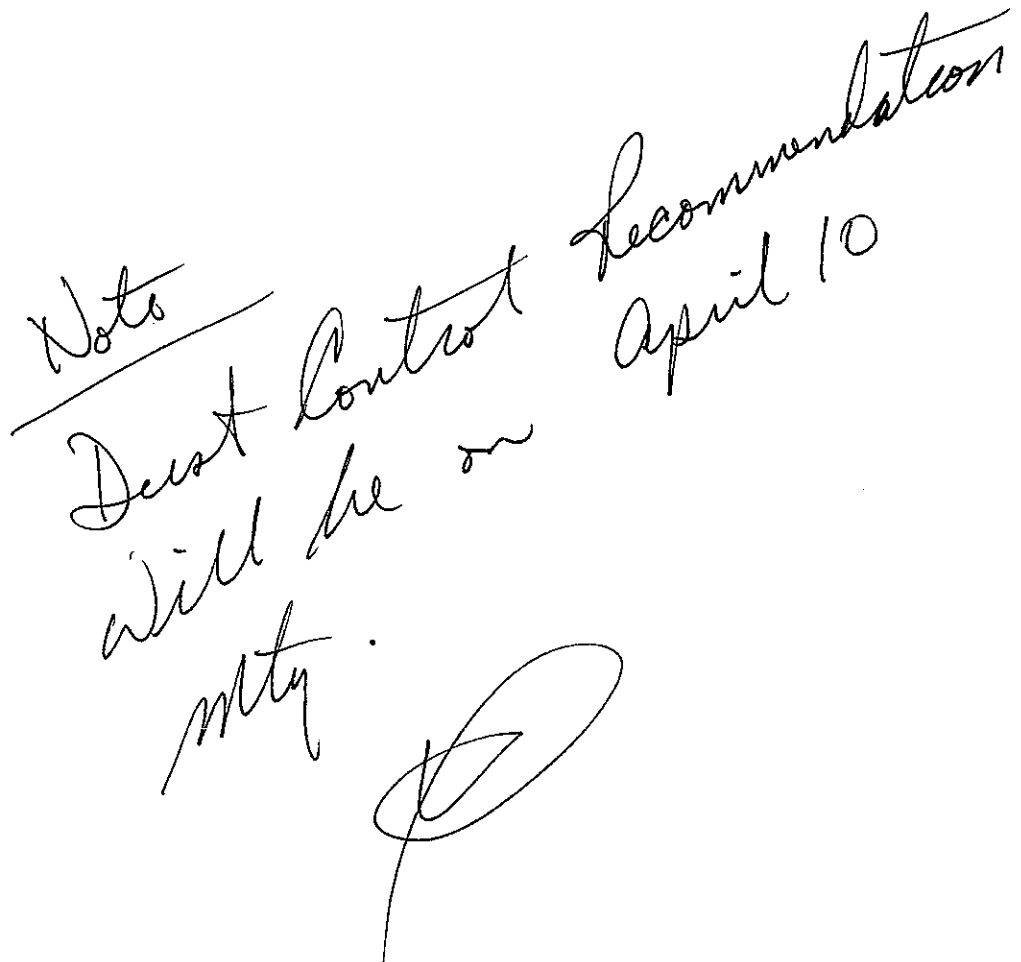 Note
Dust Control Recommendation
will be on April 10
mtg.